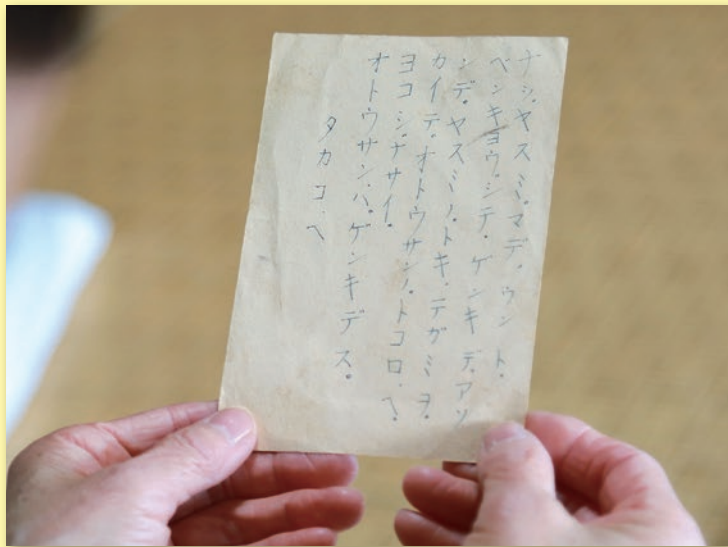 ナツ.ヤスミ.マデ.ウント.
ベンキョウ.シテ.ゲンキデ.アソ
ンデ.ヤスミ.ノ.トキ.テガミヲ.
カイテ.オトウサン.ノ.トコロ.ヘ.
ヨコシ.ナサイ.
オトウサン.ハ.ゲンキデス.
タカコ.ヘ